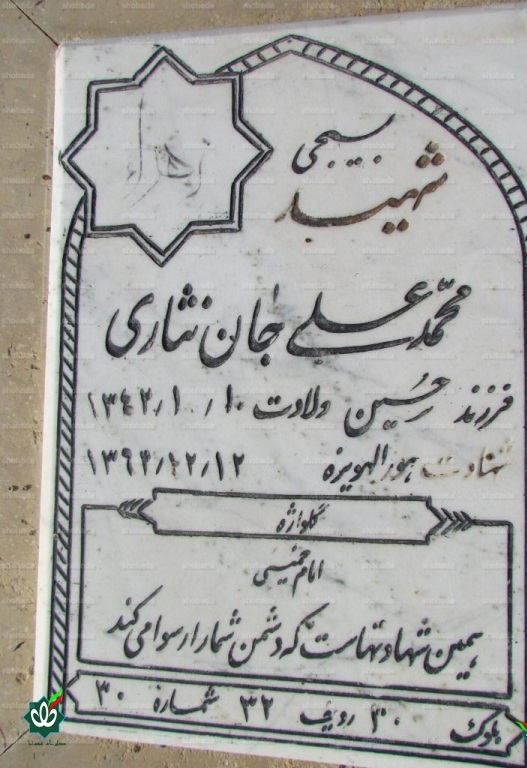 بسیجی
شهید
محمدعلی جان نثاری
فرزند حسین ولادت ۱۳۴۲/۱۰/۱۰
شهادت هورالهویزه ۱۳۶۲/۱۲/۱۲
گلواژه
امام خمینی
همین شهادتهاست که دشمن شما را رسوا می کند
بلوک ۳۰ ردیف ۳۲ شماره ۳۰